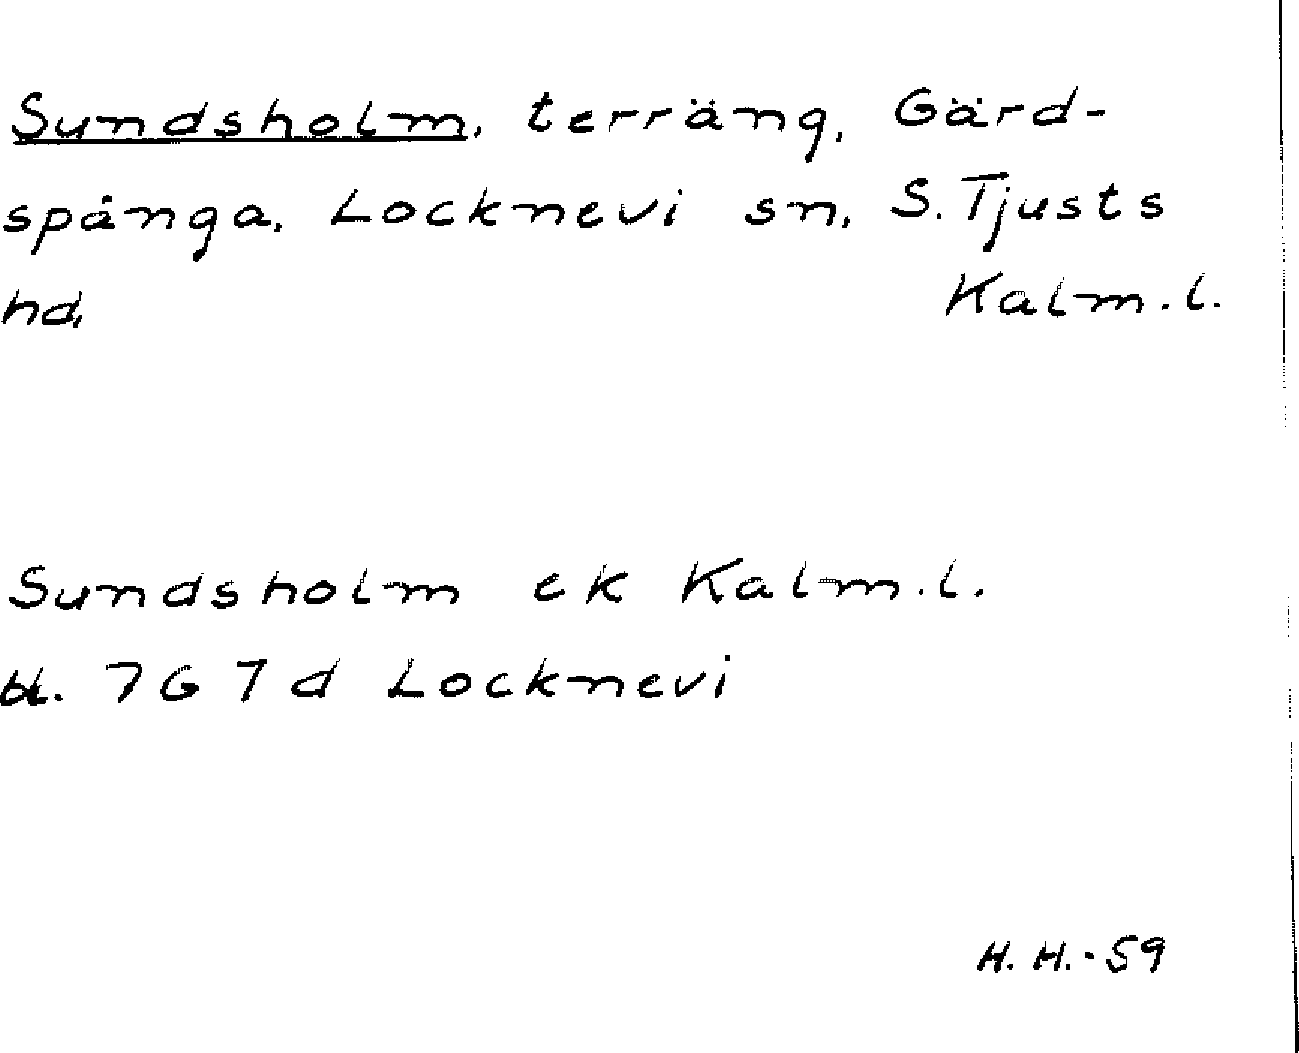 Sundsholm, terräng, Gärd-
spånga, Locknevi sn, S. Tjusts
hd, Kalm. l.
Sundsholm ek Kalm. l.
bl. 7G 7d Locknevi
H. H. - 59